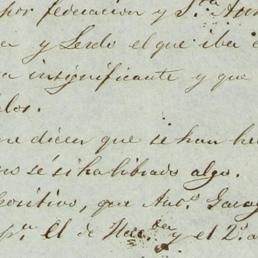 por federacion y Sta Ann
a y Lerdo el que iba e
a insignificante y que
los.
me dicen que se han he
no sé si ha librado algo.
positivo, que Anto Garay
pr El de Nove y el 2o a